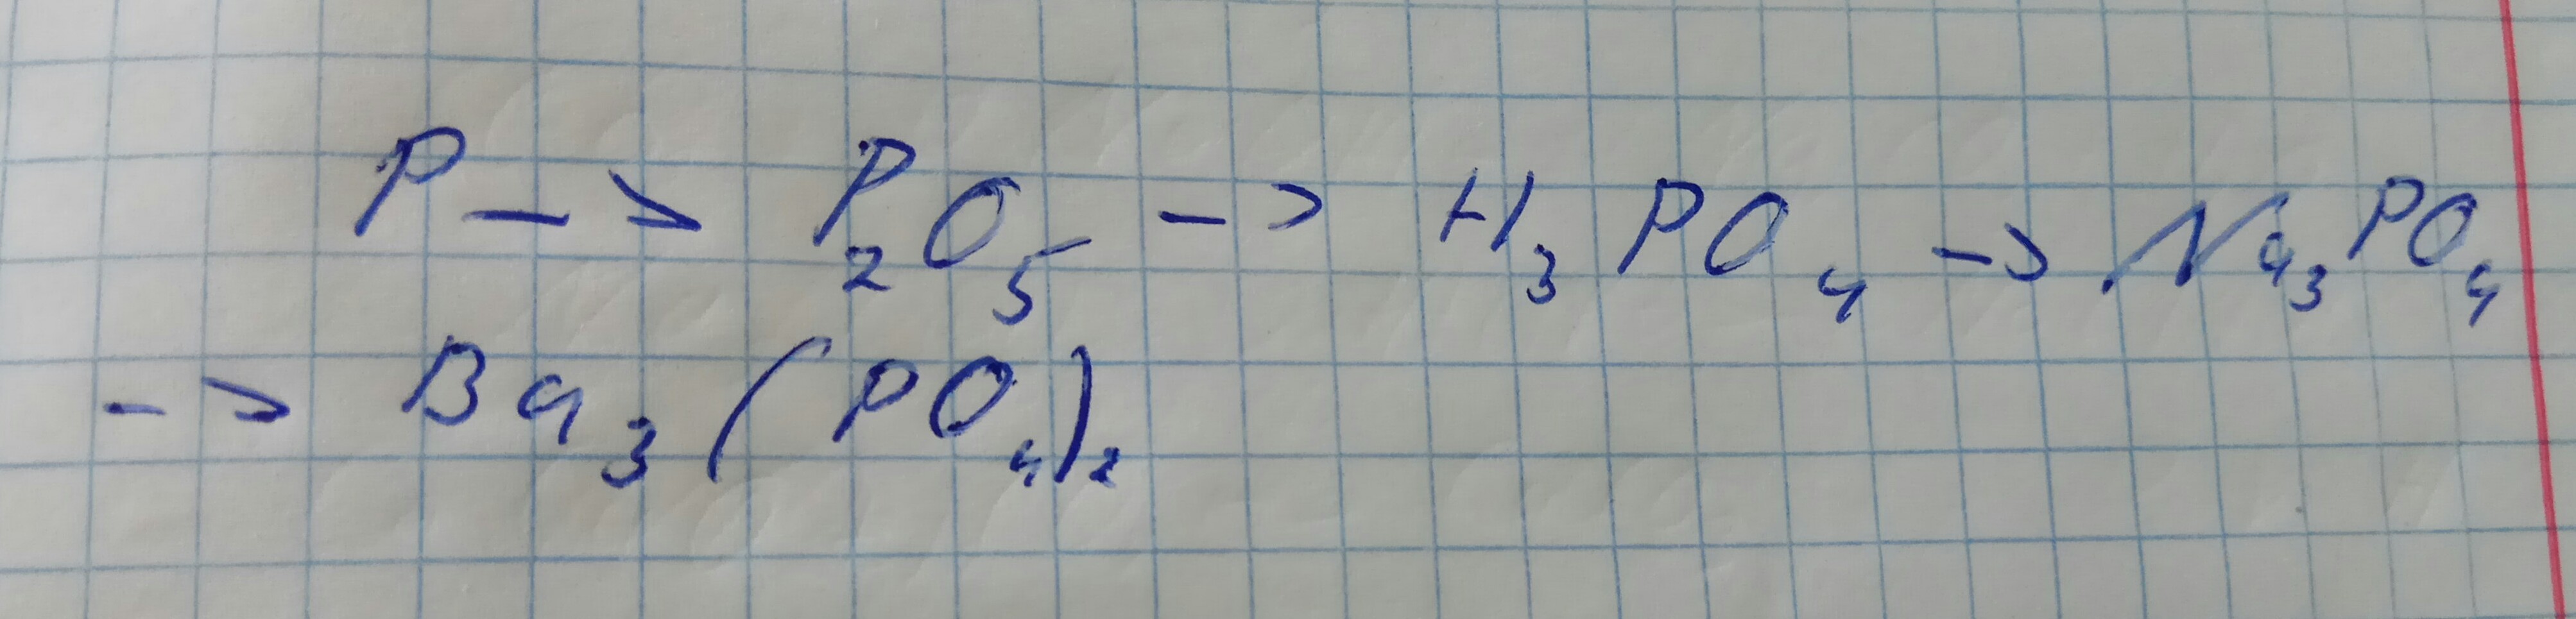 P -> P₂O₅ -> H₃PO₄ -> Na₃PO₄
-> Ba₃(PO₄)₂